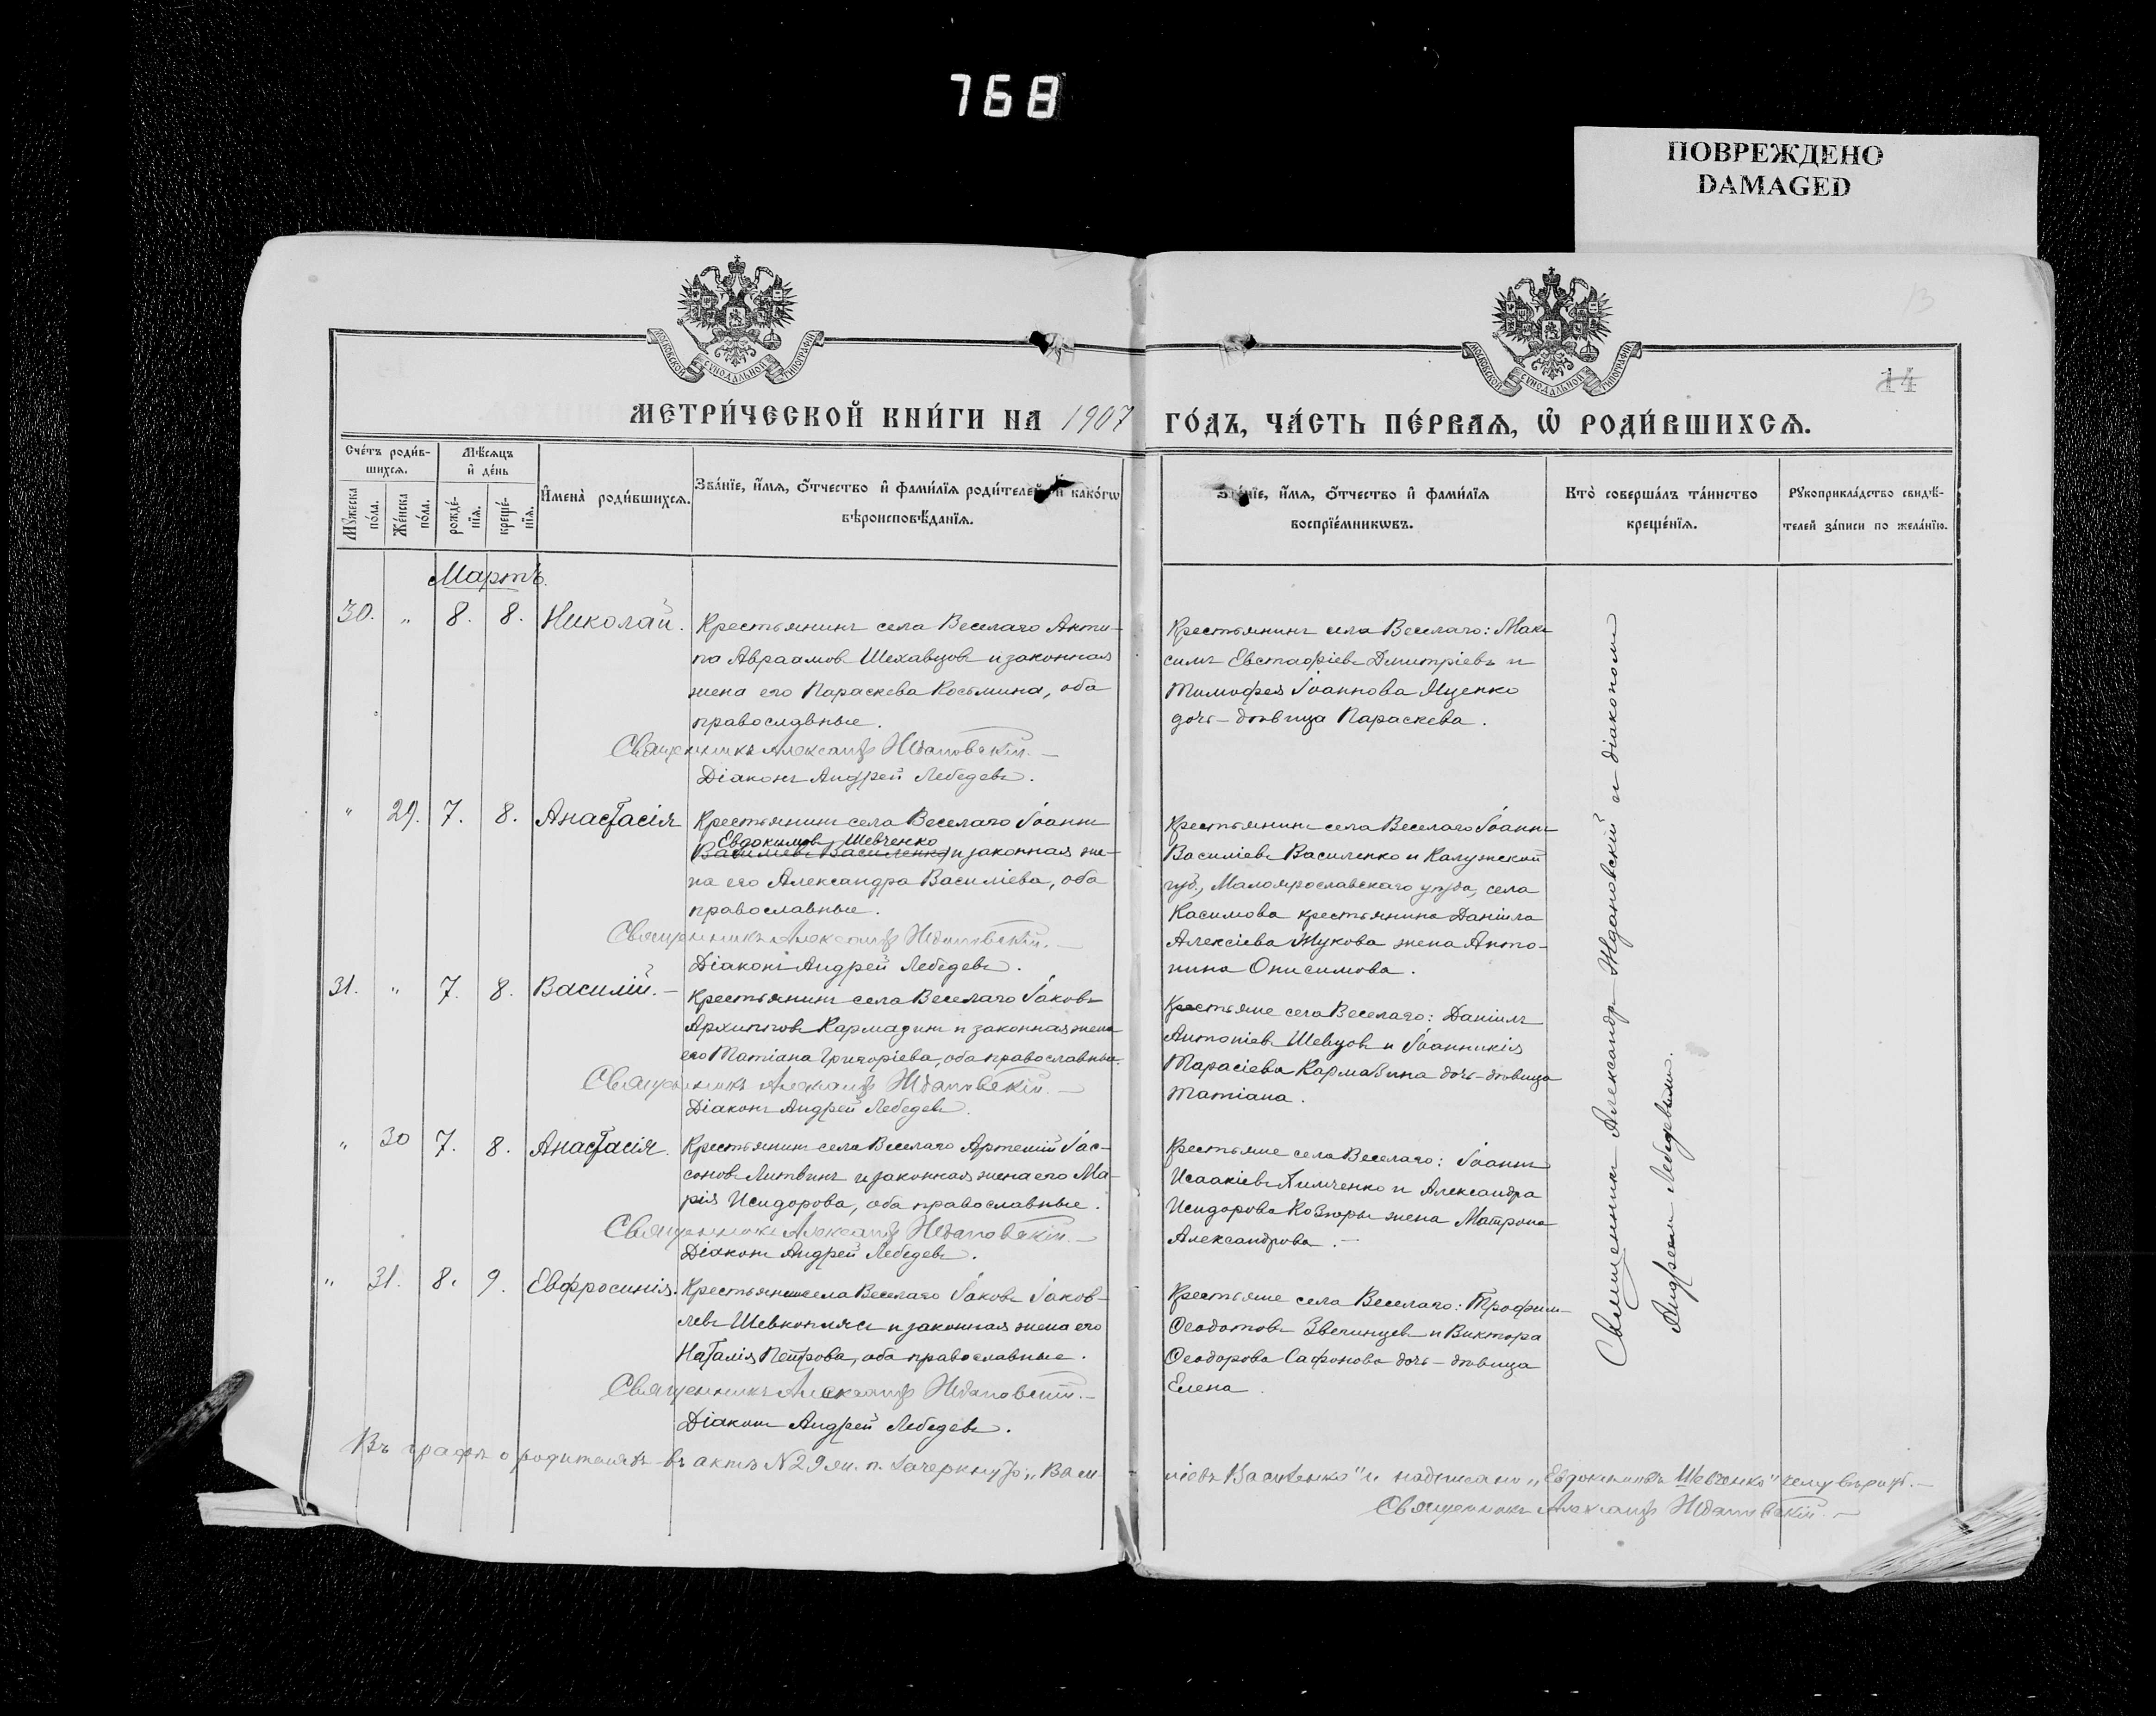 768
ПОВРЕЖДЕНО
DAMAGED
МОСКОВСКОЙ СѴНОДАЛЬНОЙ ТИПОГРАФІИ
МОСКОВСКОЙ СѴНОДАЛЬНОЙ ТИПОГРАФІИ
13
14
МЕТРИ́ЧЕСКОЙ КНИ́ГИ НА 1907 ГО́ДЪ, ЧА́СТЬ ПЕ́РВАѦ, Ѡ҆ РОДИ́ВШИХСѦ.
Сче́тъ роди́в-
шихсѧ.
Мꙋ́жеска по́ла.
Же́нска по́ла.
Мѣ́сѧцъ
и҆ де́нь
рожде́-
нїѧ.
креще́-
нїѧ.
И҆мена̀ роди́вшихсѧ.
Зва́нїе, и҆́мѧ, ѻ҆́тчество и҆ фами́лїѧ роди́телей и҆ како́гѡ
вѣроисповѣ́данїѧ.
Зва́нїе, и҆́мѧ, ѻ҆́тчество и҆ фами́лїѧ
воспрїе́мникѡвъ.
Кто̀ соверша́лъ та́инство
креще́нїѧ.
Рꙋкоприкла́дство свидѣ́-
телей за́писи по жела́нїю.
Мартъ.
30. " 8. 8. Николай.
Крестьянинъ села Веселаго Анти-
па Авраамовъ Шехавцовъ и законная
жена его Параскева Косьмина, оба
православные.
Священникъ Александръ Ждановскій.-
Діаконъ Андрей Лебедевъ.
Крестьянинъ села Веселаго: Мак-
симъ Евстафіевъ Дмитріевъ и
Тимофея Іоаннова Яценко
дочь-дѣвица Параскева.
" 29. 7. 8. Анастасія
Крестьянинъ села Веселаго Іоаннъ
Евдокимовъ Шевченко
Василіевъ Василенко и законная же-
на его Александра Василіева, оба
православные.
Священникъ Александръ Ждановскій.-
Діаконъ Андрей Лебедевъ.
Крестьянинъ села Веселаго Іоаннъ
Василіевъ Василенко и Калужской
губ., Малоярославскаго уѣзда, села
Касимова крестьянина Даніила
Алексіева Жукова жена Анто-
нина Онисимова.
31. " 7. 8. Василій.-
Крестьянинъ села Веселаго Іаковъ
Архипповъ Кармазинъ и законная жена
его Татіана Григоріева, оба православные.
Священникъ Александръ Ждановскій.-
Діаконъ Андрей Лебедевъ.
Крестьяне села Веселаго: Даніилъ
Антоніевъ Шевцовъ и Іоанникія
Тарасіева Кармазина дочь-дѣвица
Татіана.
" 30 7. 8. Анастасія.
Крестьянинъ села Веселаго Артемій Іас-
соновъ Литвинъ и законная жена его Ма-
рія Исидорова, оба православные.
Священникъ Александръ Ждановскій.-
Діаконъ Андрей Лебедевъ.
Крестьяне села Веселаго: Іоаннъ
Исаакіевъ и Александра
Исидорова жена Матрона
Александрова.-
" 31. 8. 9. Евфросинія.
Крестьянинъ села Веселаго Іаковъ Іаков-
левъ Шевкоплясъ и законная жена его
Наталія Петрова, оба православные.
Священникъ Александръ Ждановскій.-
Діаконъ Андрей Лебедевъ.
Крестьяне села Веселаго: Трофимъ
Ѳеодотовъ Звегинцевъ и Виктора
Ѳеодорова Сафонова дочь-дѣвица
Елена.
Священникъ Александръ Ждановскій и діакономъ
Андреем Лебедевымъ.
Въ графѣ о родителяхъ въ актѣ №29 ж. п. зачеркнуто: „Васи-
ліевъ Василенко" и надписано „Евдокимовъ Шевченко" чему вѣрить.-
Священникъ Александръ Ждановскій.-